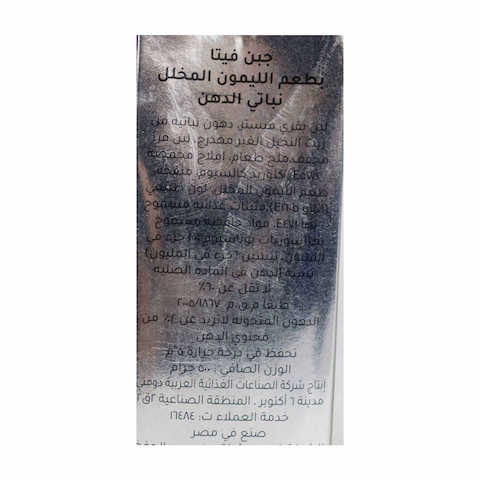 جبن فيتا
بطعم الليمون المخلل
نباتي الدهن
لبن بقري مبستر، دهون نباتيه من
زيت النخيل الغير مهدرج، لبن فرز
مجفف، ملح طعام، املاح مخفضة
كلوريد كالسيوم، منفحة،
طعم الليمون المخلل، لون طبيعي
مثبتات غذائيه مسموح
بها E٤٧١، مواد حافظه مسموح
بها (سوربات بوتاسيوم جزء في
المليون، نيسين جزء في المليون)
نسبة الدهن في الماده الصلبه
لا تقل عن ٦٠٪
طبقا م.ق.م ٢٠٠٥/١٨٦٧
الدهون المتحوله لاتزيد عن ٢٪ من
محتوي الدهن
تحفظ في درجة حرارة ٥°م
الوزن الصافي: ٥٠٠ جرام
إنتاج شركة الصناعات الغذائية العربية دومتي
مدينة ٦ أكتوبر ، المنطقة الصناعية
خدمة العملاء ت: ١٦٤٨٤
صنع في مصر